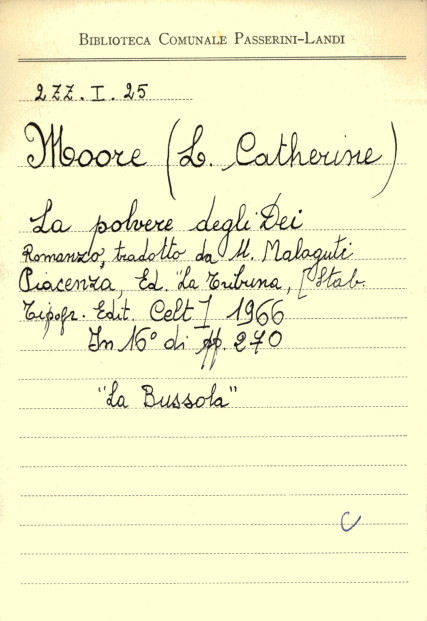 BIBLIOTECA COMUNALE PASSERINI-LANDI
2ZZ.I.25
Moore (L. Catherine)
La polvere degli Dei
Romanzo, tradotto da U. Malaguti
Piacenza, Ed. "La Tribuna, [Stab.
Tipogr. Edit. Celt] 1966
In 16° di pp. 270
"La Bussola"
C